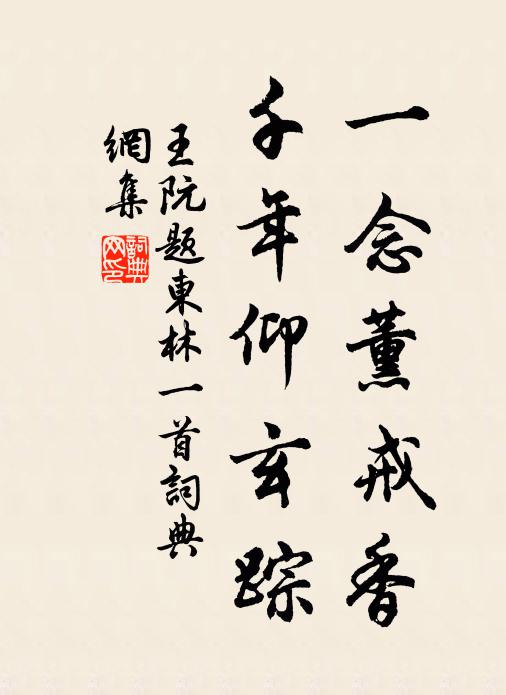 一念薰戒香
千年仰玄踪
王阮題東林一首詞典
網集
詞典
网印